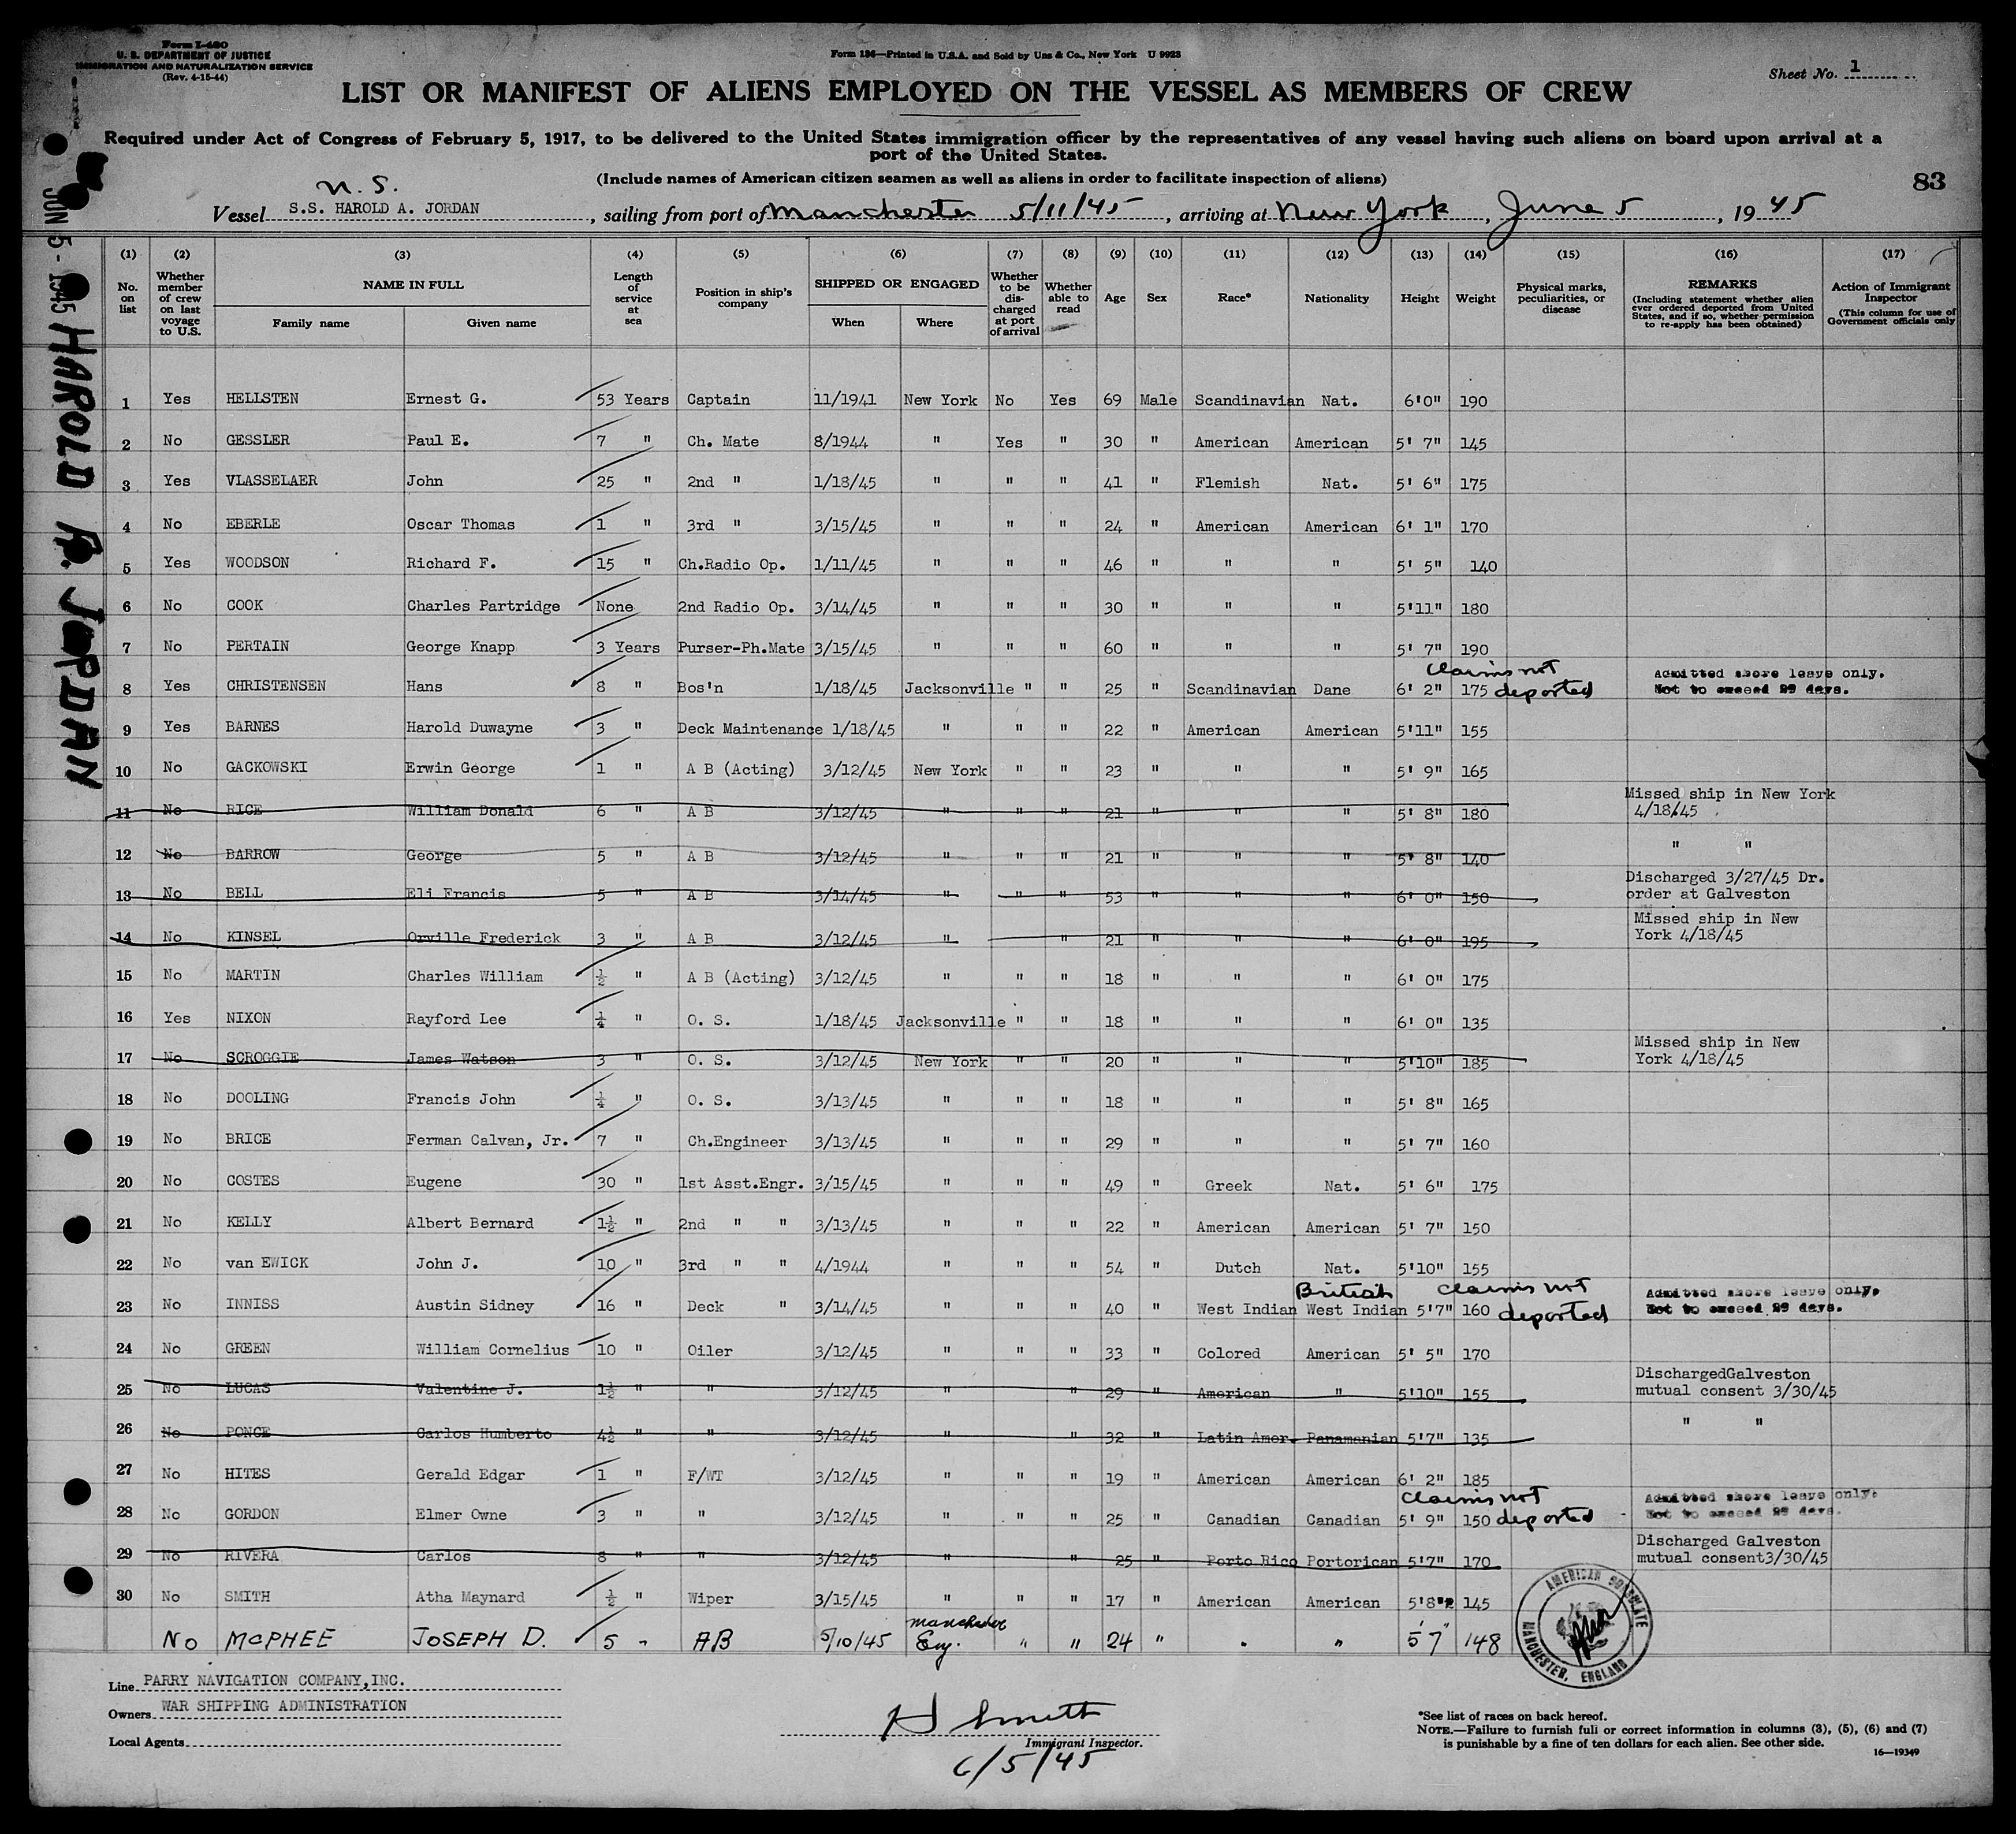 Form I-480
U. S. DEPARTMENT OF JUSTICE
IMMIGRATION AND NATURALIZATION SERVICE
(Rev. 4-15-44)
Form 186—Printed in U.S.A. and Sold by Unz & Co., New York U 9923
Sheet No. 1
LIST OR MANIFEST OF ALIENS EMPLOYED ON THE VESSEL AS MEMBERS OF CREW
Required under Act of Congress of February 5, 1917, to be delivered to the United States immigration officer by the representatives of any vessel having such aliens on board upon arrival at a
port of the United States.
(Include names of American citizen seamen as well as aliens in order to facilitate inspection of aliens)
83
Vessel S.S. HAROLD A. JORDAN, sailing from port of Manchester 5/11/45, arriving at New York, June 5, 1945
JUN 5 - 1945
HAROLD A. JORDAN
(1) (2) (3) (4) (5) (6) (7) (8) (9) (10) (11) (12) (13) (14) (15) (16) (17)
No. on list
Whether member of crew on last voyage to U.S.
NAME IN FULL
Family name Given name
Length of service at sea
Position in ship's company
SHIPPED OR ENGAGED
When Where
Whether to be discharged at port of arrival
Whether able to read
Age
Sex
Race*
Nationality
Height
Weight
Physical marks, peculiarities, or disease
REMARKS
(Including statement whether alien ever ordered deported from United States, and if so, whether permission to re-apply has been obtained)
Action of Immigrant Inspector
(This column for use of Government officials only
1 Yes HELLSTEN Ernest G. 53 Years Captain 11/1941 New York No Yes 69 Male Scandinavian Nat. 6'0" 190
2 No GESSLER Paul E. 7 " Ch. Mate 8/1944 " Yes " 30 " American American 5' 7" 145
3 Yes VLASSELAER John 25 " 2nd " 1/18/45 " " " 41 " Flemish Nat. 5' 6" 175
4 No EBERLE Oscar Thomas 1 " 3rd " 3/15/45 " " " 24 " American American 6' 1" 170
5 Yes WOODSON Richard F. 15 " Ch.Radio Op. 1/11/45 " " " 46 " " " 5' 5" 140
6 No COOK Charles Partridge None 2nd Radio Op. 3/14/45 " " " 30 " " " 5'11" 180
7 No PERTAIN George Knapp 3 Years Purser-Ph.Mate 3/15/45 " " " 60 " " " 5' 7" 190
8 Yes CHRISTENSEN Hans 8 " Bos'n 1/18/45 Jacksonville " " 25 " Scandinavian Dane 6' 2" 175 claims not deported Admitted shore leave only. Not to exceed 29 days.
9 Yes BARNES Harold Duwayne 3 " Deck Maintenance 1/18/45 " " " 22 " American American 5'11" 155
10 No GACKOWSKI Erwin George 1 " A B (Acting) 3/12/45 New York " " 23 " " " 5' 9" 165
11 No RICE William Donald 6 " A B 3/12/45 " " " 21 " " " 5' 8" 180 Missed ship in New York 4/18/45
12 No BARROW George 5 " A B 3/12/45 " " " 21 " " " 5' 8" 140 " "
13 No BELL Eli Francis 5 " A B 3/14/45 " " " 53 " " " 6' 0" 150 Discharged 3/27/45 Dr. order at Galveston
14 No KINSEL Orville Frederick 3 " A B 3/12/45 " " 21 " " " 6' 0" 195 Missed ship in New York 4/18/45
15 No MARTIN Charles William ½ " A B (Acting) 3/12/45 " " " 18 " " " 6' 0" 175
16 Yes NIXON Rayford Lee ¼ " O. S. 1/18/45 Jacksonville " " 18 " " " 6' 0" 135
17 No SCROGGIE James Watson 3 " O. S. 3/12/45 New York " " 20 " " " 5'10" 185 Missed ship in New York 4/18/45
18 No DOOLING Francis John ¼ " O. S. 3/13/45 " " " 18 " " " 5' 8" 165
19 No BRICE Ferman Calvan, Jr. 7 " Ch.Engineer 3/13/45 " " " 29 " " " 5' 7" 160
20 No COSTES Eugene 30 " 1st Asst.Engr. 3/15/45 " " " 49 " Greek Nat. 5' 6" 175
21 No KELLY Albert Bernard 1½ " 2nd " " 3/13/45 " " " 22 " American American 5' 7" 150
22 No van EWICK John J. 10 " 3rd " " 4/1944 " " " 54 " Dutch Nat. 5'10" 155
23 No INNISS Austin Sidney 16 " Deck " 3/14/45 " " " 40 " West Indian British West Indian 5'7" 160 claims not deported Admitted shore leave only. Not to exceed 29 days.
24 No GREEN William Cornelius 10 " Oiler 3/12/45 " " " 33 " Colored American 5' 5" 170
25 No LUCAS Valentine J. 1½ " " 3/12/45 " " 29 " American " 5'10" 155 DischargedGalveston mutual consent 3/30/45
26 No PONCE Carlos Humberto 4½ " " 3/12/45 " " 32 " Latin Amer. Panamanian 5'7" 135 " "
27 No HITES Gerald Edgar 1 " F/WT 3/12/45 " " " 19 " American American 6' 2" 185
28 No GORDON Elmer Owne 3 " " 3/12/45 " " " 25 " Canadian Canadian 5' 9" 150 claims not deported Admitted shore leave only. Not to exceed 29 days.
29 No RIVERA Carlos 8 " " 3/12/45 " " 25 " Porto Rico Portorican 5'7" 170 Discharged Galveston mutual consent3/30/45
30 No SMITH Atha Maynard ½ " Wiper 3/15/45 " " " 17 " American American 5'8" 145
No McPHEE JOSEPH D. 5 " AB 5/10/45 Manchester Eng. " " 24 " " " 5'7 148
AMERICAN CONSULATE
MANCHESTER, ENGLAND
Line PARRY NAVIGATION COMPANY,INC.
Owners WAR SHIPPING ADMINISTRATION
Local Agents
H Smith
Immigrant Inspector.
6/5/45
*See list of races on back hereof.
NOTE.—Failure to furnish full or correct information in columns (3), (5), (6) and (7)
is punishable by a fine of ten dollars for each alien. See other side.
16—19349